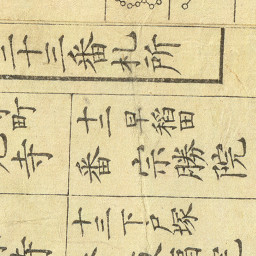 三十三番札所
町
寺
十二 早稲田
番 宗勝院
十三 下戸塚